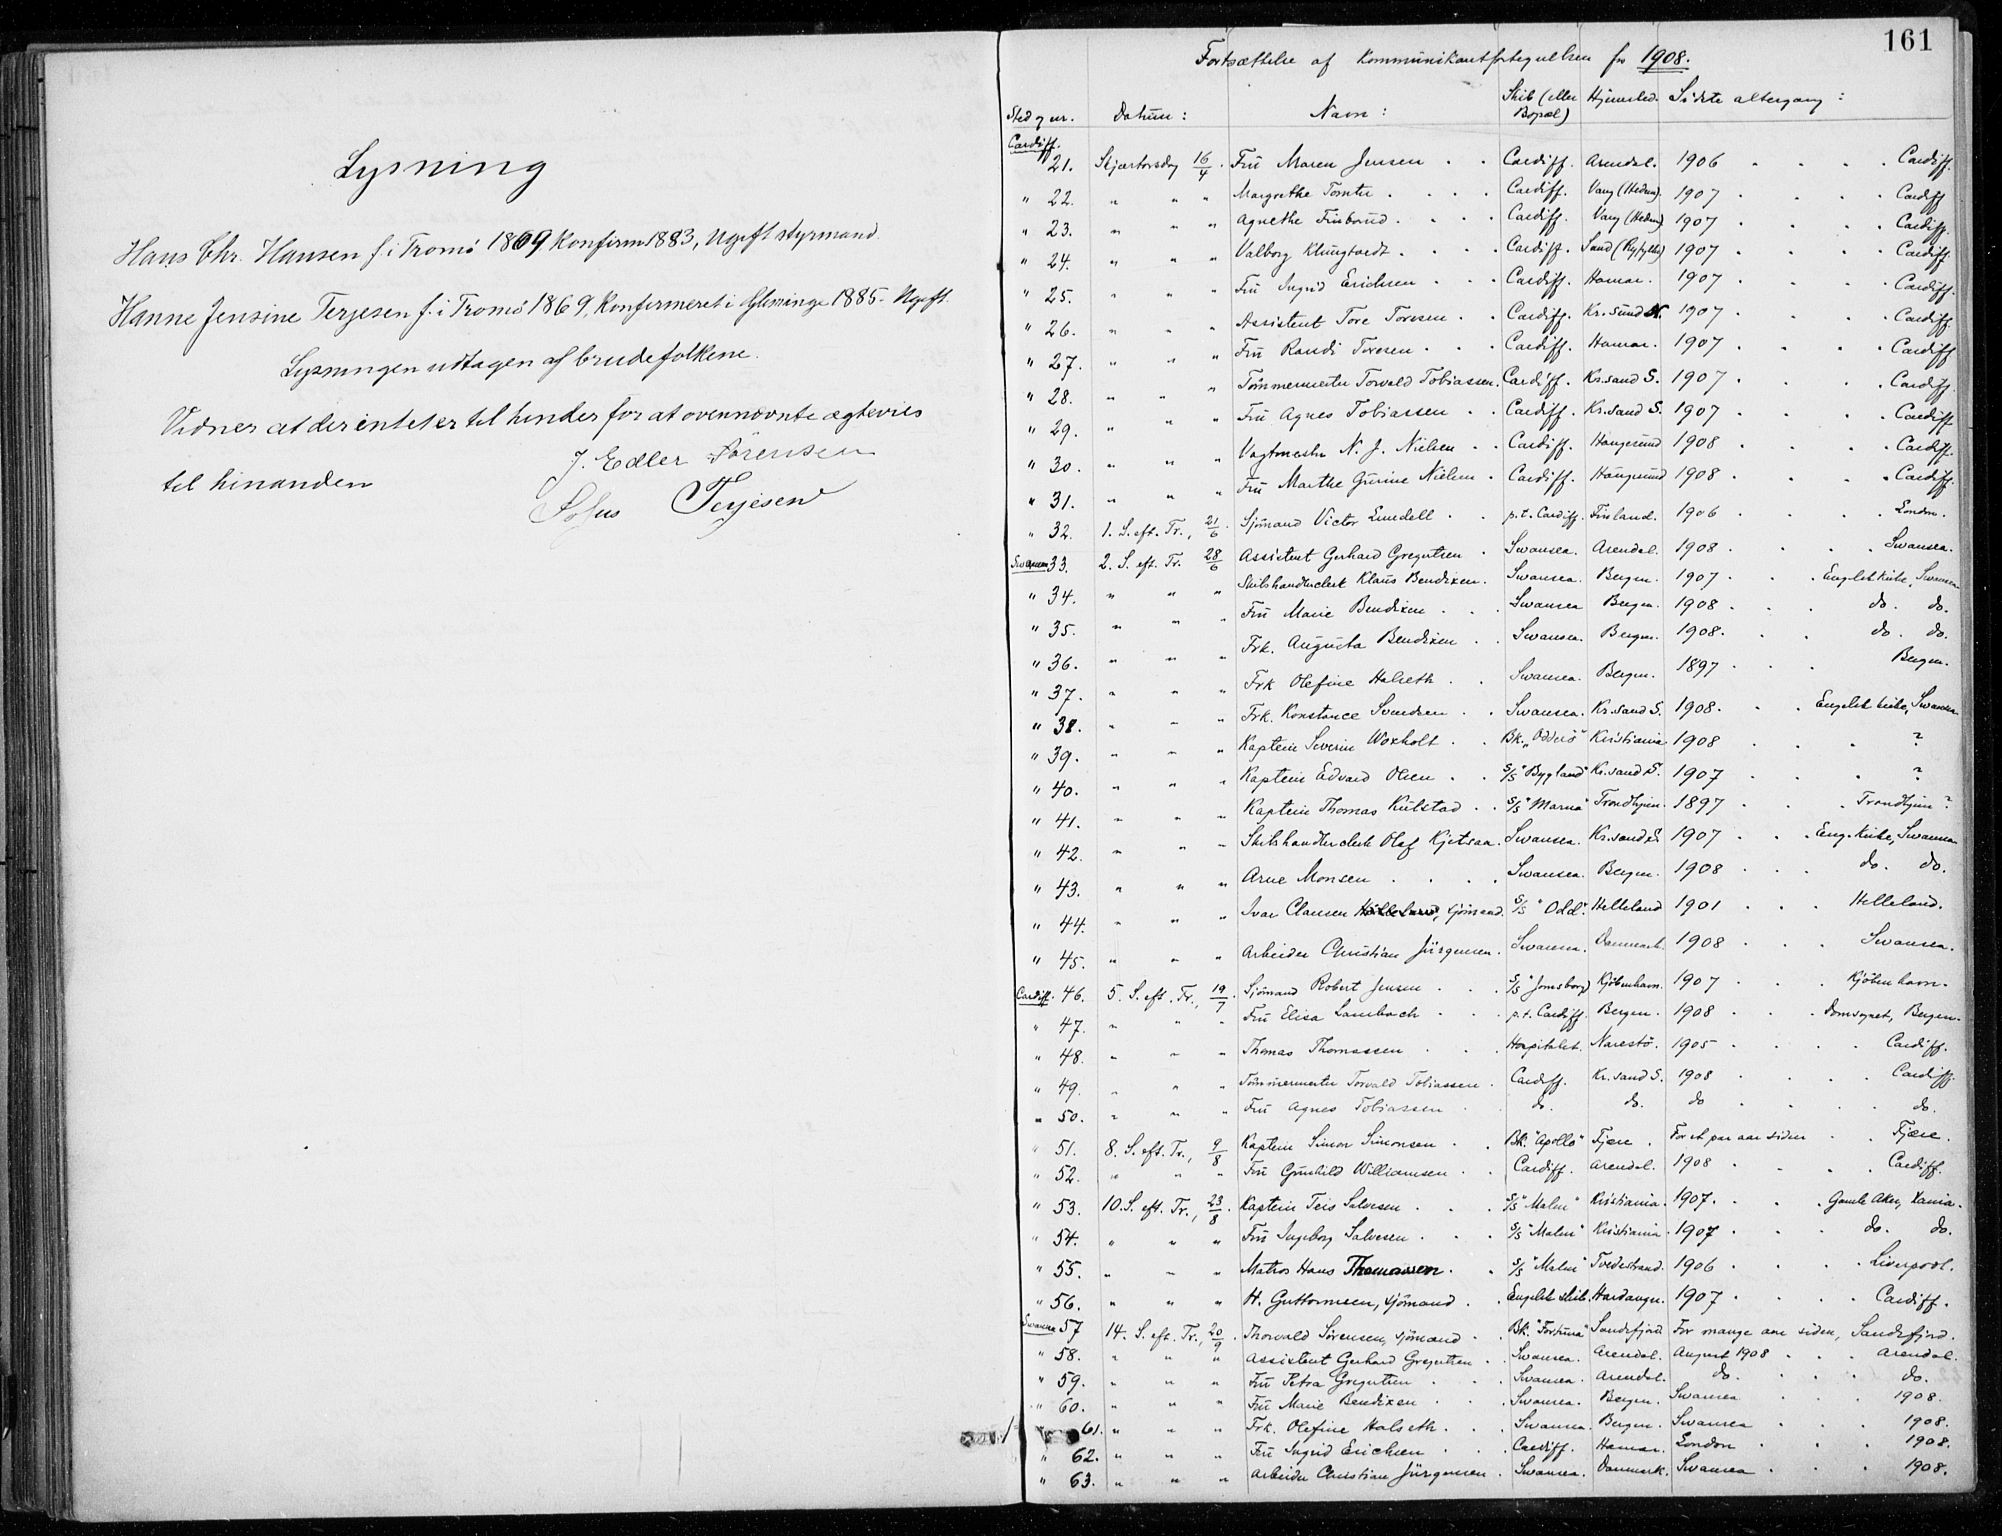 Lysning
Hans Chr. Hansen f. i Tromø 1869 Konfirm 1883, Ugift styrmand.
Hanne Jensine Terjesen f. i Tromø 1869, Konfirmeret i 1885. Ugift.
Lysningen udtagen af brudefolkene.
Vidner at der intet er til hinder for at ovennævnte ægtevies
til hinanden
J. Edler Sörensen
Sofus Terjesen
161
Fortsættelse af Kommunikantfortegnelsen for 1908.
Sted og nr. Datum: Navn: Skib (eller Bopæl) Hjemsted. Sidste altergang:
Cardiff.
21. Skjærtorsdag 16/4. Frü Maren Jensen . . Cardiff. Arendal. 1906 . . . . Cardiff.
" 22. " " " Margrethe Tomter . . . . Cardiff. Vang (Hedem). 1907 . . . . Cardiff
" 23. " " " Agnethe Finborud . . . . Cardiff. Vang (Hedem) 1907 . . . . Cardiff.
" 24. " " " Valborg Klungtvedt . . . . Cardiff. Sand (Ryfylke) 1907 . . . . Cardiff
" 25. " " " Frü Ingrid Erichsen . . . Cardiff. Hamar. 1907 . . . . Cardiff.
" 26. " " " Assistent Tore Toresen . . Cardiff. Kr.sund N. 1907 . . . . Cardiff
" 27. " " " Frü Randi Toresen . . . Cardiff. Hamar. 1907 . . . . Cardiff
" 28. " " " Tömmermester Torvald Tobiassen. Cardiff. Kr.sand S. 1907 . . . Cardiff.
" 29. " " " Frü Agnes Tobiassen . . Cardiff. Kr.sand S. 1907 . . . Cardiff
" 30. " " " Vagtmester N. J. Nielsen . . Cardiff. Haugesund 1908 . . . Cardiff.
" 31. " " " Frü Marthe Gurine Nielsen . Cardiff. Haugesund 1908 . . . Cardiff.
" 32. 1. S. eft. Tr., 21/6. Sjömand Victor Lundell . . p.t. Cardiff. Finland. 1906 . . . London.
Swansea 33. 2. S. eft. Tr. 28/6 Assistent Gerhard Gregertsen . Swansea. Arendal. 1908 . . . . Swansea.
" 34. " " " Skibshandlerclerk Klaus Bendixen. Swansea. Bergen. 1907 . . . Engelsk kirke, Swansea
" 35. " " " Frü Marie Bendixen . . . Swansea Bergen. 1908 . . . do. do.
" 36. " " " Frk. Augusta Bendixen . . Swansea. Bergen. 1908. . . do. do.
" 37. " " " Frk Olefine Halseth . . Swansea. Bergen. 1897 . . . Bergen.
" 38. " " " Frk. Konstance Svendsen . . Swansea. Kr.sand S. 1908. . . . Engelsk kirke, Swansea
" 39. " " " Kaptein Severin Woxholt . . Bk. "Odderö" Kristiania 1908 . . . ?
" 40. " " " Kaptein Edvard Olsen . . S/S "Bygland" Kr.sand S. 1907 . . . ?
" 41. " " " Kaptein Thomas Kulstad . . S/S "Marna" Trondhjem. 1897 . . . Trondhjem ?
" 42. " " " Skibshandlerclerk Olaf Kjetsaa. Swansea. Kr.sand S. 1907 . . . Eng. kirke, Swansea
" 43. " " " Arne Monsen . . . . Swansea. Bergen. 1908 . . . do. do.
" 44. " " " Ivar Clausen Helleland, sjömand. S/S "Odd". Helleland 1901 . . . Helleland.
" 45. " " " Arbeider Christian Jürgensen. Swansea. Danmark. 1908 . . . Swansea.
Cardiff. 46. 5. S. eft. Tr., 19/7. Sjömand Robert Jensen . . . S/S "Jomsborg" Kjöbenhavn. 1907 . . . Kjöbenhavn.
" 47. " " " Frü Elisa Lambach . . . p.t. Cardiff. Bergen. 1908 . . . Domsognet, Bergen.
" 48. " " " Thomas Thomassen . . . Hospitalet. Narestö. 1905 . . . . Cardiff.
" 49. " " " Tömmermester Torvald Tobiassen . Cardiff. Kr.sand S. 1908 . . . . Cardiff.
" 50. " " " Frü Agnes Tobiassen . do. do. do . . . . do.
" 51. 8. S. eft. Tr., 9/8 Kaptein Simon Simonsen . . Bk. "Apollo" Fjære . For et par aar siden . . Fjære.
" 52. " " " Frü Gunhild Williamsen . . Cardiff. Arendal. 1908 . . . . Cardiff.
" 53. 10. S. eft. Tr., 23/8. Kaptein Teis Salvesen . . . S/S "Malm" Kristiania. 1907. . . . Gamle Aker, Xania.
" 54. " " " Frü Ingeborg Salvesen . . . S/S "Malm" Kristiania . 1907 . . . do. do.
" 55. " " " Matros Hans Thomassen . . S/S "Malm" Tvedestrand. 1906 . . . . Liverpool.
" 56. " " " H. Guttormsen, sjömand . . Engelsk skib. Hardanger. 1907 . . . . Cardiff.
Swansea 57 14. S. eft. Tr., 20/9. Thorvald Sörensen, sjömand . . Bk. "Fortuna" Sandefjord. For mange aar siden, Sandefjord.
" 58. " " " Assistent Gerhard Gregertsen . . Swansea. Arendal. August 1908 . . . Arendal.
" 59. " " " Frü Petra Gregertsen . . . Swansea. Arendal. do. . . . do.
" 60. " " " Frü Marie Bendixen . . . Swansea. Bergen. Swansea . . . 1908.
61. " " " Frk. Olefine Halseth . . . Swansea. Bergen. Swansea . . . 1908.
" 62. " " " Frü Ingrid Erichsen . . . Cardiff. Hamar. London . . . 1908.
" 63. " " " Arbeider Christian Jürgensen . Swansea. Danmark. Swansea . . . 1908.